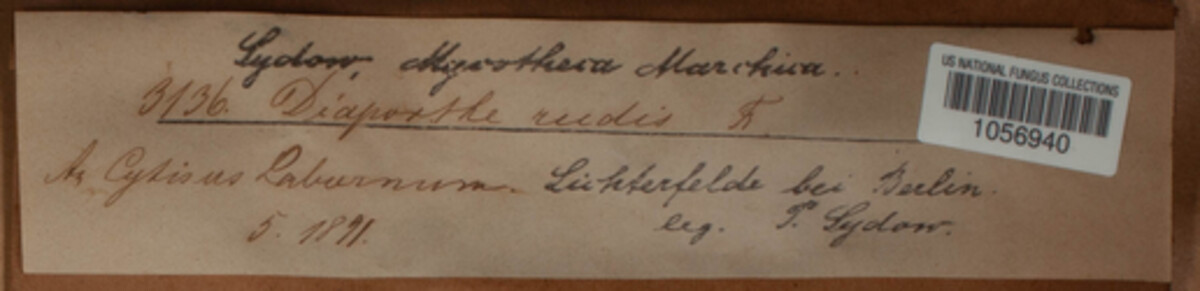 Sydow, Mycotheca Marchica.
3136. Diaporthe rudis Fr.
An Cytisus Laburnum. Lichterfelde bei Berlin.
5. 1891. leg. P. Sydow.
US NATIONAL FUNGUS COLLECTIONS
1056940